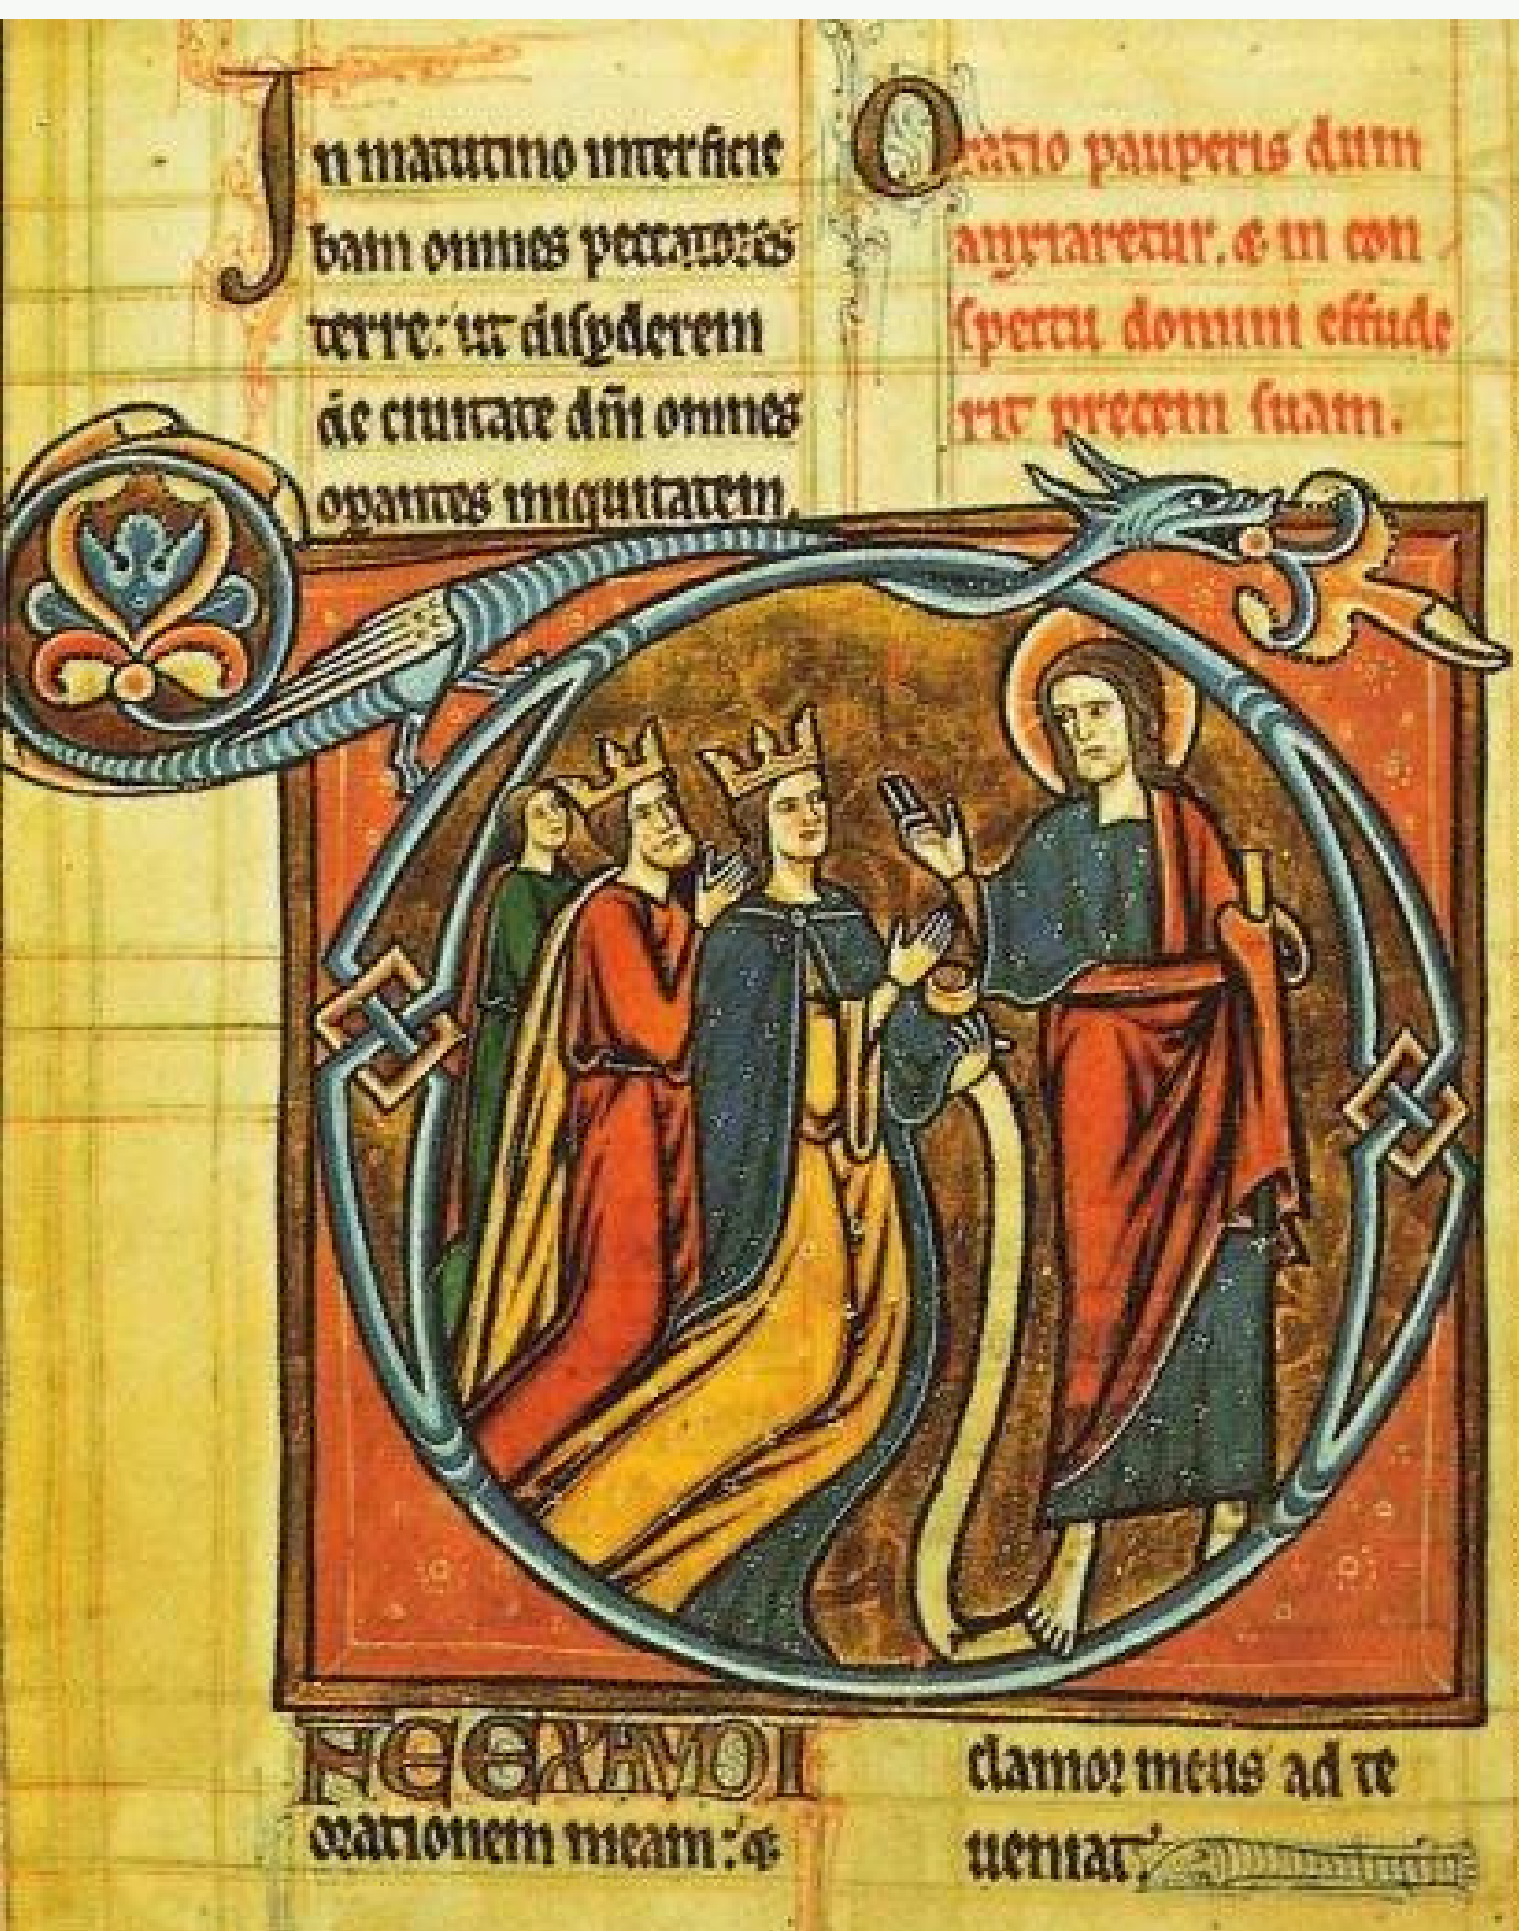 In matutino interficie
bam omnes peccatores
terre: ut disp̱derem
de ciuitate dn̄i omnes
op̱antes iniquitatem.
Oratio pauperis dum
anxiaretur. & in con
spectu domini effude
rit precem suam.
D
NE EXAUDI
orationem meam: &
clamor meus ad te
ueniat.